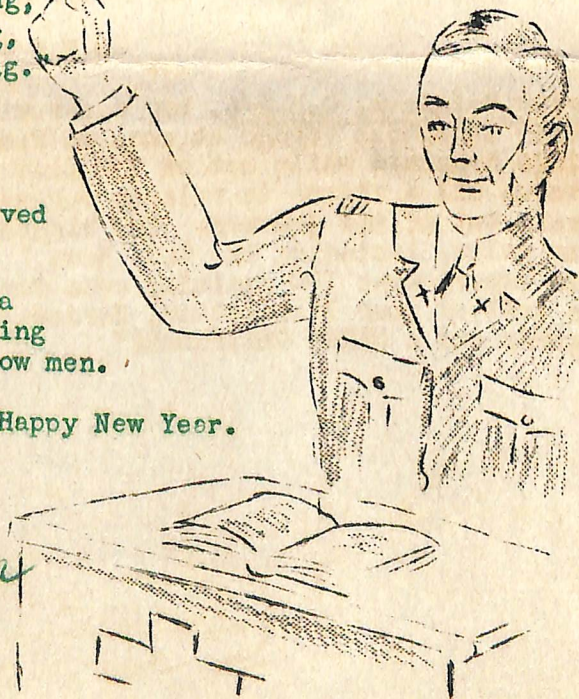 g,
g.
ved
a
ing
ow men.
Happy New Year.